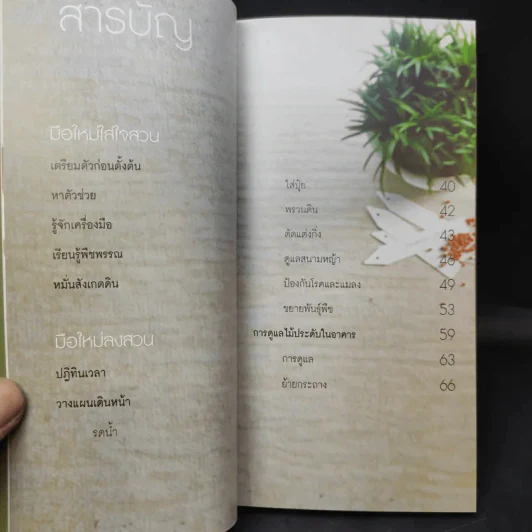 สารบัญ
มือใหม่ใส่ใจสวน
เตรียมตัวก่อนตั้งต้น
หาตัวช่วย
รู้จักเครื่องมือ
เรียนรู้พืชพรรณ
หมั่นสังเกตดิน
มือใหม่ลงสวน
ปฏิทินเวลา
วางแผนเดินหน้า
รดน้ำ
ใส่ปุ๋ย 40
พรวนดิน 42
ตัดแต่งกิ่ง 43
ดูแลสนามหญ้า 48
ป้องกันโรคและแมลง 49
ขยายพันธุ์พืช 53
การดูแลไม้ประดับในอาคาร 59
การดูแล 63
ย้ายกระถาง 66